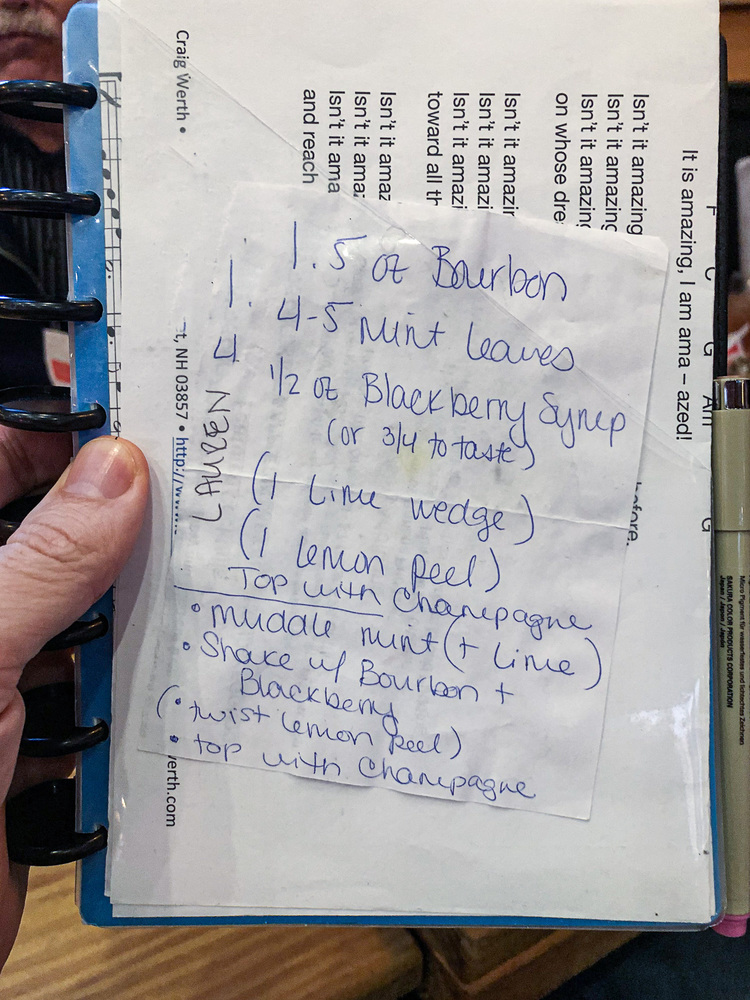 1.5 oz Bourbon
4-5 mint leaves
1/2 oz Blackberry Syrup
(or 3/4 to taste)
(1 Lime wedge)
(1 lemon peel)
Top with Champagne
• muddle mint (+ lime)
• Shake w/ Bourbon +
Blackberry
(• twist lemon peel)
• top with Champagne
1.
4
LAUREN
It is amazing, I am ama – azed!
Isn't it amazing
Isn't it amazing
Isn't it amazing
on whose dre
Isn't it amazin
Isn't it amazi
Isn't it amazi
toward all th
Isn't it amaz
Isn't it ama
Isn't it ama
and reach
before.
F C G Am G
Craig Werth •
t, NH 03857 • http://w
erth.com
Micro Pigment für wasserfestes und lichtechtes Zeichnen
SAKURA COLOR PRODUCTS CORPORATION
Japan / Japon / Japón